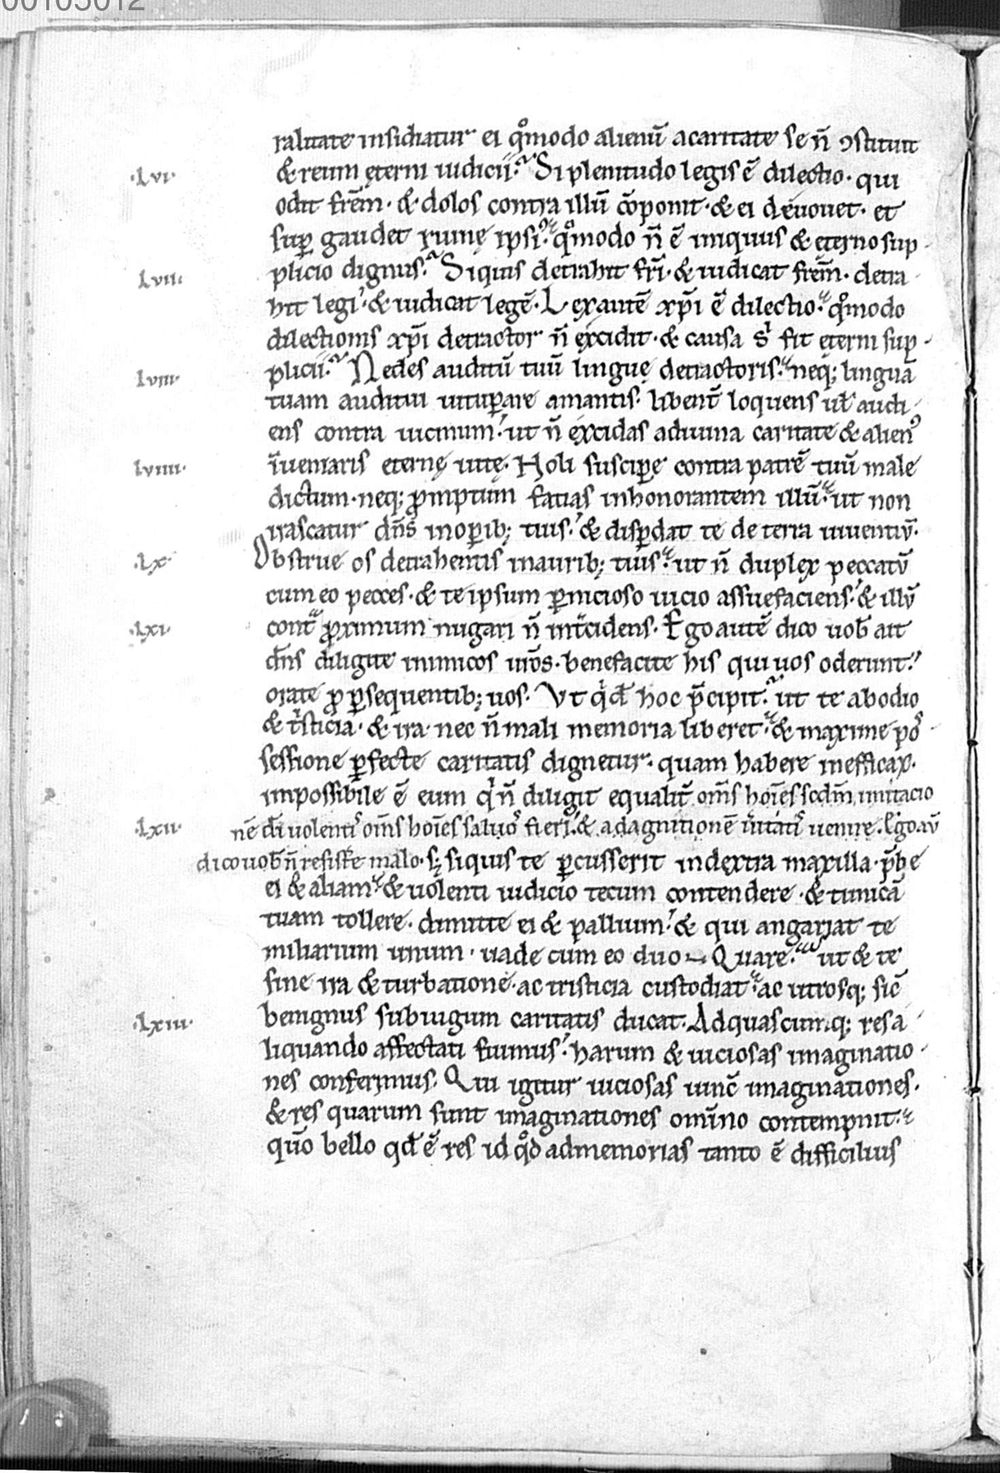 00105012
ralitate insidiatur ei qͦmodo alienū a caritate se n̄ ꝯstituit
·Lvi· & reum ęterni iudicii. Si plenitudo legis ē dilectio· qui
odit frēm· & dolos contra illū cōponit· & ei deuouet· et
sup gaudet ruinę ipsi᾽· qͦmodo n̄ ē iniquus & ęterno sup-
·Lvii· plicio dignus. Siquis detrahit frī· & iudicat frēm· detra-
hit legi· & iudicat legē· Lex autē xp̄i ē dilectio· qͦmodo
dilectionis xp̄i detractor n̄ excidit· & causa s᾽ fit ęterni sup-
·Lviii· plicii. Nedes auditū tuū linguę detractoris· neq; linguā
tuam auditui uitupare amantis· libent̄ loquens ul̄ audi-
ens contra uicinum· ut n̄ excidas adiuina caritate & alienꝰ
·Lviiii· īueniaris eternę uitę· Noli suscipe contra patrē tuū male
dictum· neq; promptum fatias inhonorantem illū· ut non
irascatur dn̄s in opib; tuis· & dispdat te de terra uiuentiū·
·Lx· Obstrue os detrahentis inaurib; tuis· ut n̄ duplex peccatū
cum eo pecces· & te ipsum pnicioso uicio assuefaciens· & illū
·Lxi· contᵃ proximum nugari n̄ int̄cidens· Ego autē dico uob̄ ait
dn̄s diligite inimicos ur̄os· benefacite his qui uos oderunt·
orate pro psequentib; uos· Ut qͥd hoc p̄cipit· ut te abodio
& tͥsticia· & ira· nec n̄ mali memoria liberet· & maxime pos-
sessione pfecte caritatis dignetur· quam habere inefficax·
impossibile ē eum qͥ n̄ diligit equalit̄ om̄s hoīes scdm̄ imitacio
·Lxii· nē dī uolentiˢ om̄s hoīes saluoˢ fieri· & ad agnitionē ūitatiˢ uenire· Ego aū
dico uob̄ n̄ resistͤe malo· sꝫ siquis te pcusserit indextra maxilla· p̄be
ei & aliam· & uolenti iudicio tecum contendere· & tunicā
tuam tollere· dimitte ei & pallium· & qui angariat te
miliarium unum· uade cum eo duo· Quare· ut & te
sine ira & turbatione· ac tristicia custodiat· ac utrosq; sic̄
·Lxiii· benignus subiugum caritatis ducat· Adquascumq; res a-
liquando affectati fuimus· harum & uiciosas imaginatio-
nes conferimus· Qui igitur uiciosas uinc̄ imaginationes·
& res quarum sunt imaginationes omīno contempnit·
quō bello qd̄ ē res id qͦd admemorias tanto ē difficilius